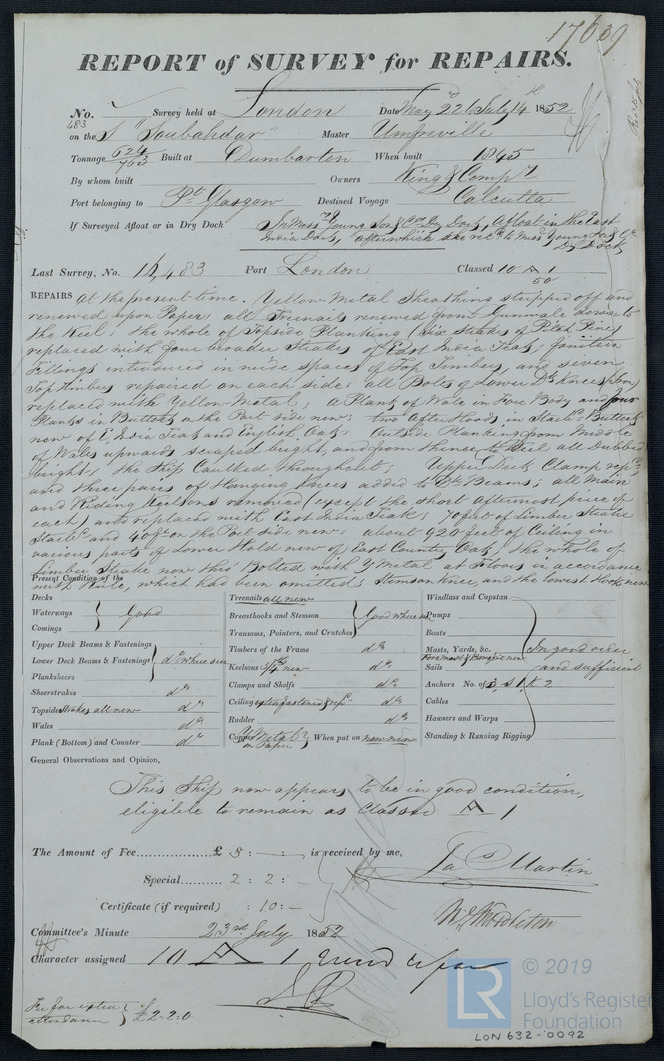 17639
REPORT of SURVEY for REPAIRS.
No. Survey held at London Date May 22 to July 14th 1852
483
on the S "Soubahdar" Master Umfreville
Tonnage 624/763 Built at Dumbarton When built 1845
By whom built Owners King & Compy
Port belonging to Pt Glasgow Destined Voyage Calcutta
If Surveyed Afloat or in Dry Dock In Messrs Young Son & Co Dry Dock, Afloat in the East
India Dock, afterwhich she ret'd to Messrs Young Son & Co
Dry Dock
Last Survey, No. 14,483 Port London Classed 10 A 1
50
REPAIRS at the present time. Yellow Metal Sheathing stripped off and
renewed upon Paper; all Treenails renewed from Gunwale down to
the Keel; the whole of Topside Planking (six Strakes of Plank Pine)
replaced with four broader Strakes of East India Teak; fourteen
fillings introduced in wide spaces of Top Timbers, and seven
Top Timbers repaired on each side; all Bolts of Lower Dk Knees (Iron)
replaced with Yellow Metal; a Plank of Wale in Fore Body and four
Planks in Buttock on the Port side new; two after hoods in Starbd Buttock
new of E. India Teak and English Oak; Outside Planking from Middle
of Wales upwards scraped bright, and from thence to Keel all Dubbed
bright; the Ship Caulked throughout; Upper Deck Clamp rep'd
and three pairs of Hanging Knees added to Dk Beams; all Main
and Riding Keelsons removed (except the short aftermost piece of
each) and replaced with East India Teak; 70 feet of Limber Strake
Starbd and 40 ft on the Port side new; about 920 feet of Ceiling in
various parts of Lower Hold new of East Country Oak; the whole of
Limber Strake now thro Bolted with Y Metal at Floors in accordance
with Rule, which had been omitted; Stemson Knee, and the lowest Hook new
Present Condition of the
Decks
Waterways } Good
Comings
Upper Deck Beams & Fastenings
Lower Deck Beams & Fastenings } do where seen
Planksheers
Sheerstrakes do
Topsides Strakes all new do
Wales do
Plank (Bottom) and Counter do
Treenails all new
Breasthooks and Stemson } Good where seen
Transoms, Pointers, and Crutches
Timbers of the Frame do
Keelsons 3/4ths new do
Clamps and Shelfs do
Ceiling extra fastened & rep'd do
Rudder do
Copper Y Metal on Paper } When put on now new
Windlass and Capstan
Pumps
Boats
Masts, Yards, &c. In good order
Foremast & Bowsprit new
Sails and sufficient
Anchors No. of 3, S 1, K 2
Cables
Hawsers and Warps
Standing & Running Rigging
General Observations and Opinion,
This Ship now appears to be in good condition,
eligible to remain as Classed A 1
The Amount of Fee £ 3 : — : — is received by me,
Special 2 : 2 : — Jas Martin
Certificate (if required) : 10 : — Wm Middleton
Committee's Minute 23rd July 1852
Character assigned 10 A 1
Fee for extra
attendance } £2-2-0
LR
© 2019
Lloyd's Register
Foundation
LON 632-0092